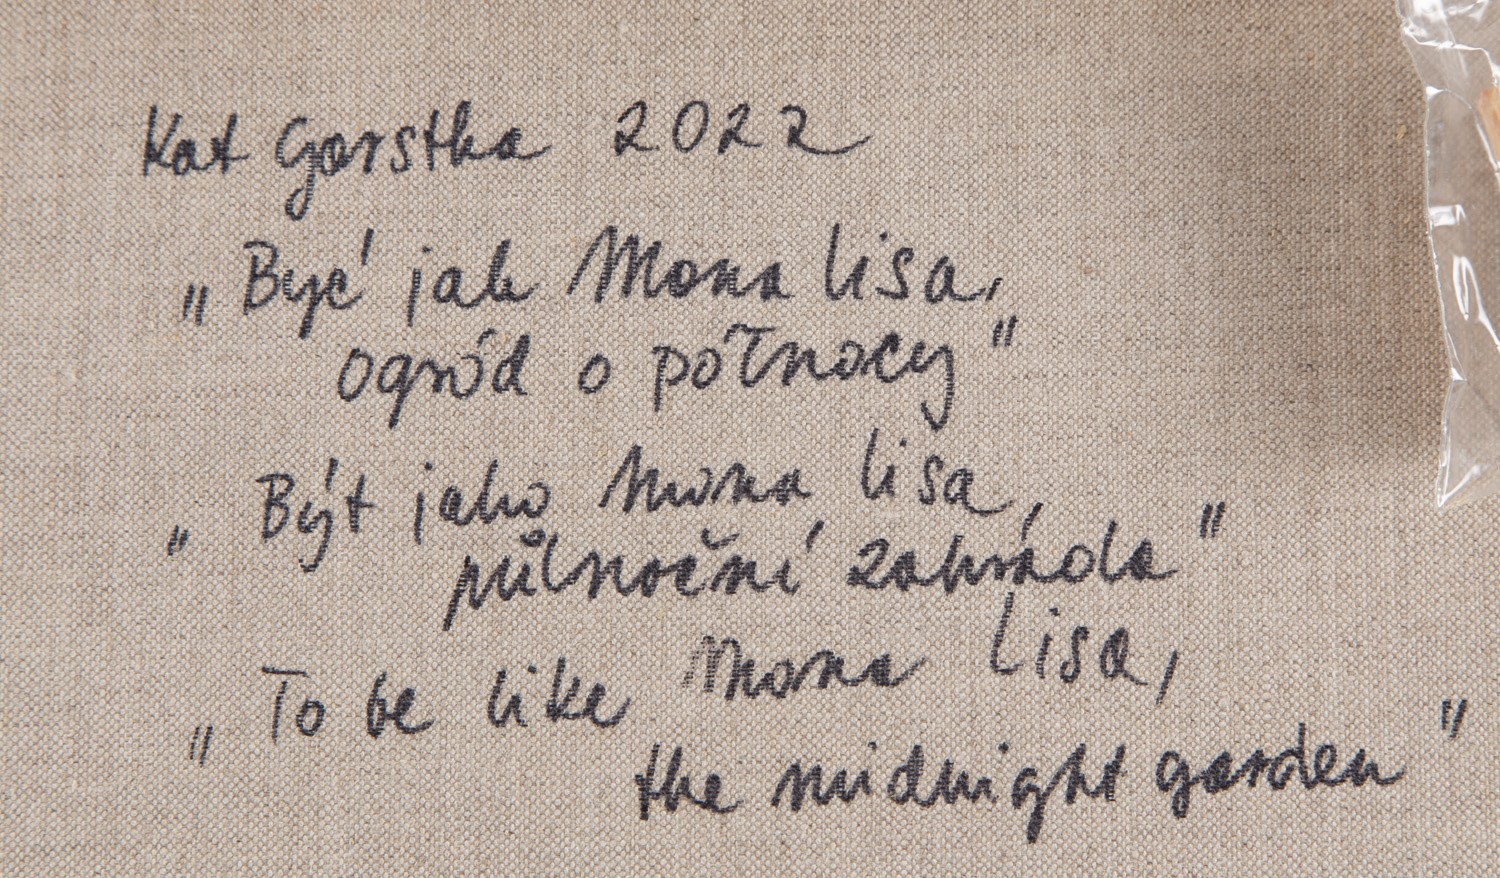 Kat Gorstka 2022
„Być jak Mona Lisa,
ogród o północy"
„Být jako Mona Lisa,
půlnoční zahrada"
„To be like Mona Lisa,
the midnight garden"